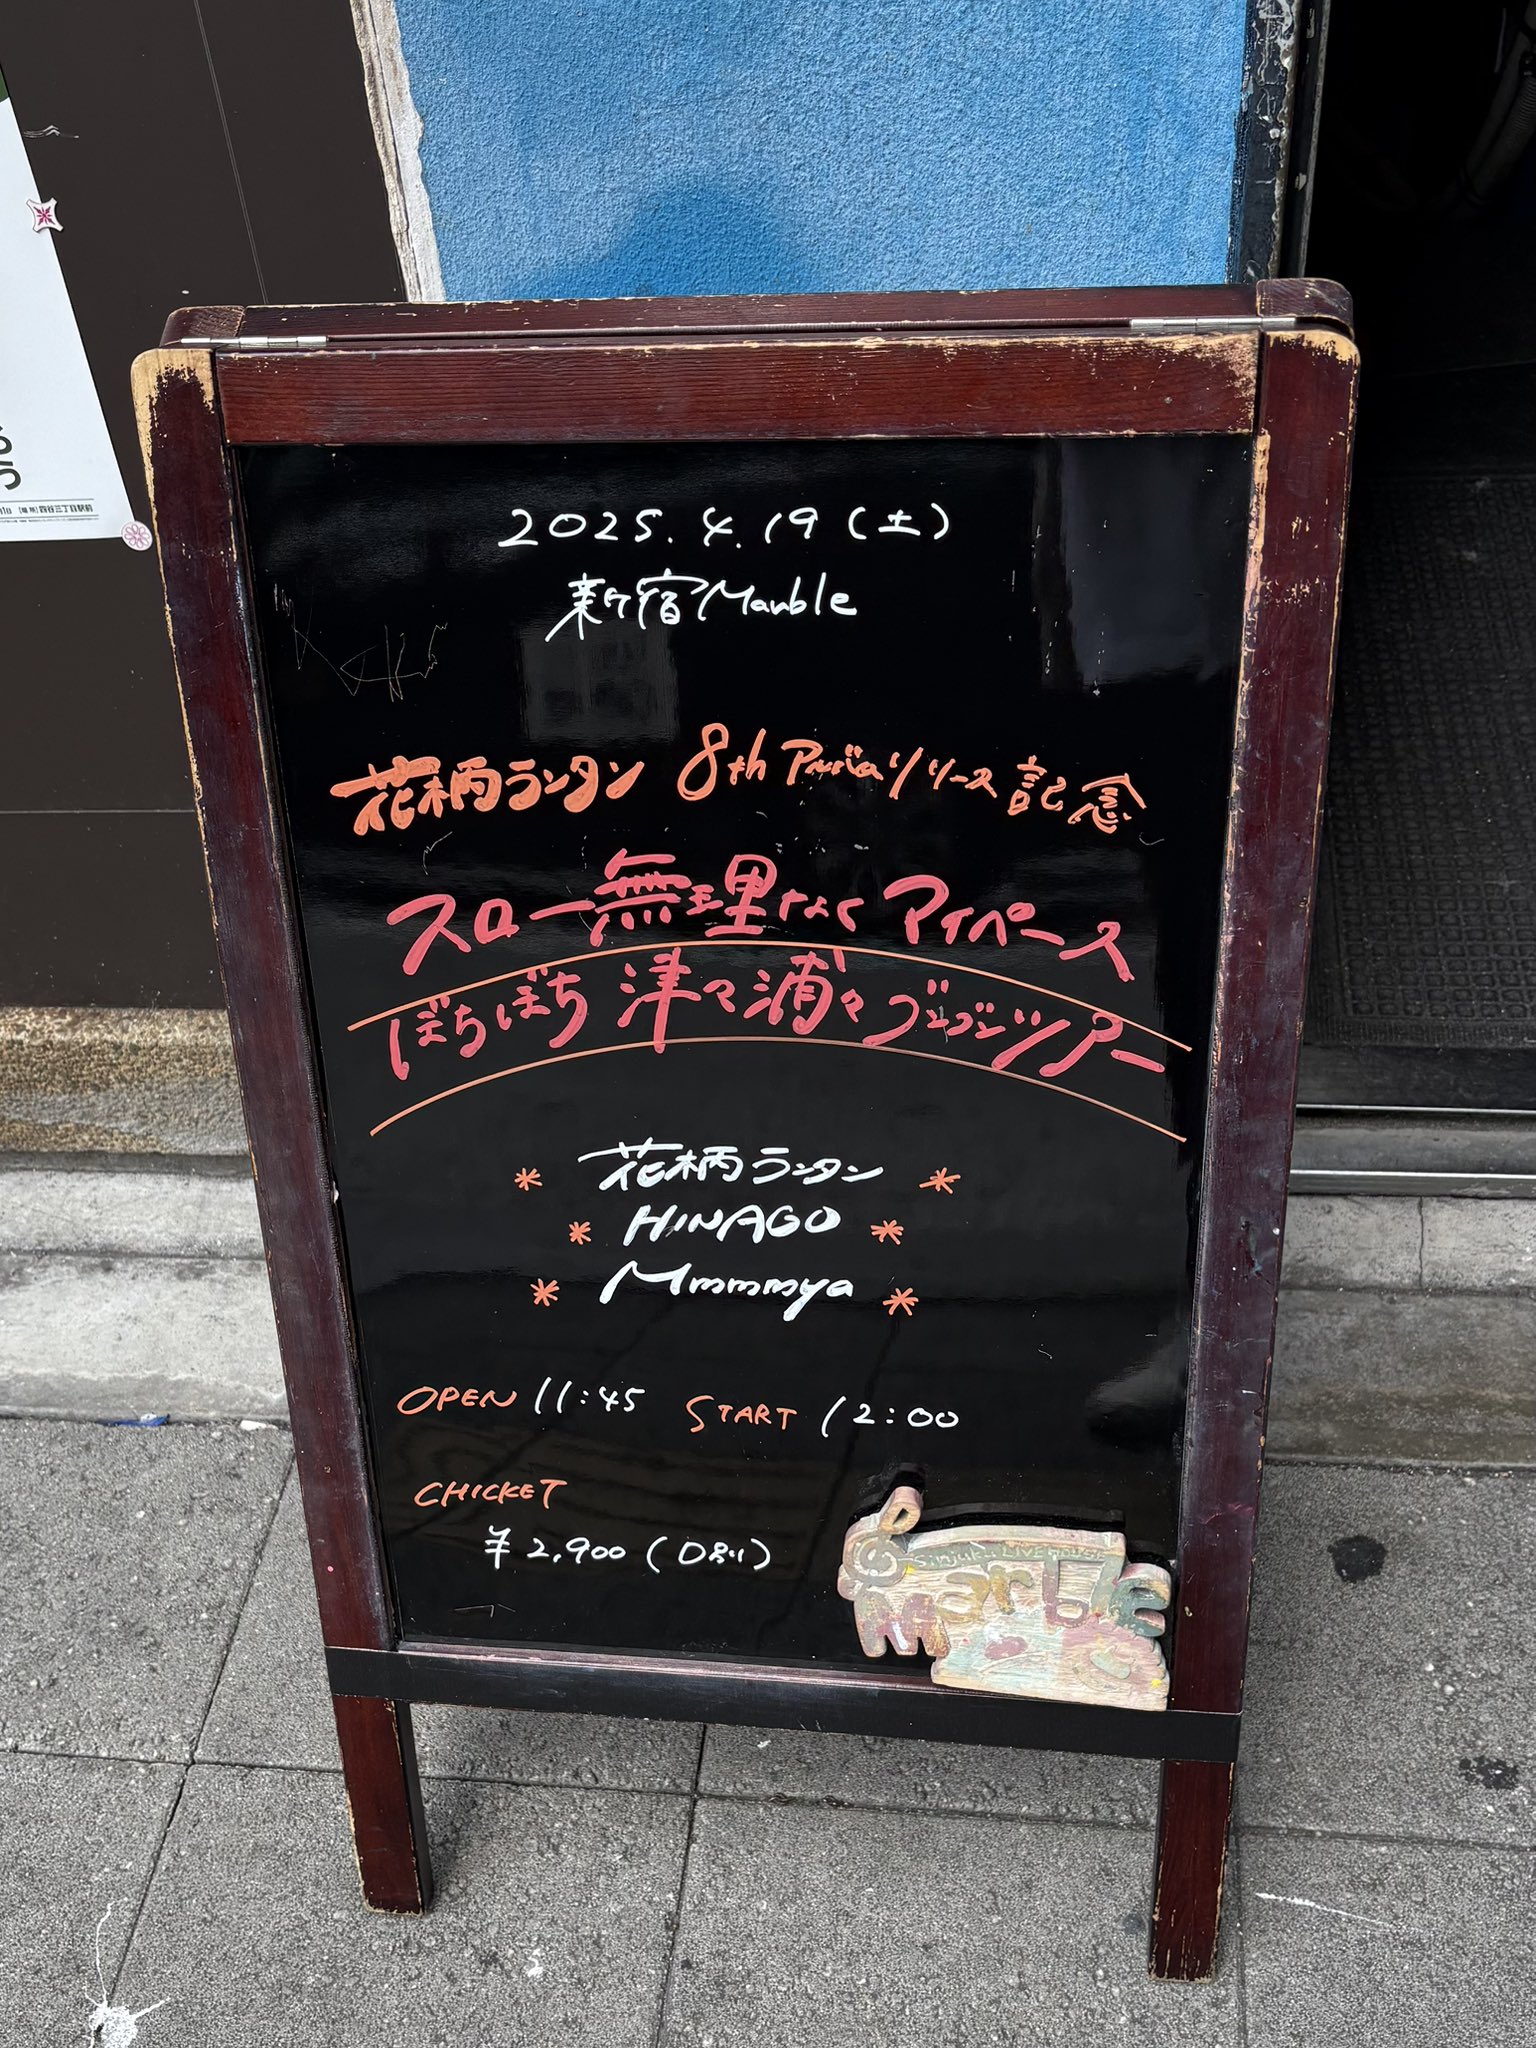 2025.4.19(土)
新宿Marble
花柄ランタン 8th アルバムリリース記念
スロー無理なくマイペース
ぼちぼち津々浦々グングンツアー
* 花柄ランタン *
* HINAGO *
* Mmmmya *
OPEN 11:45 START 12:00
CHICKET
¥2,900(D別)
Sinjuku LIVEHOUSE
Marble
[場所]四谷三丁目駅前